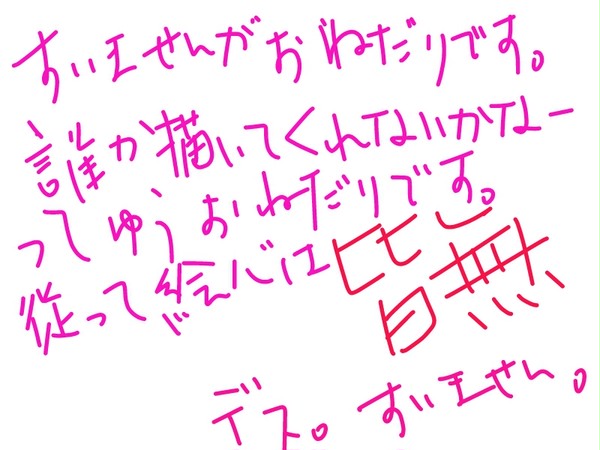 すいませんがおねだりです。
誰か描いてくれないかなー
ってゆうおねだりです。
従って絵心は皆無
デス。すいません。